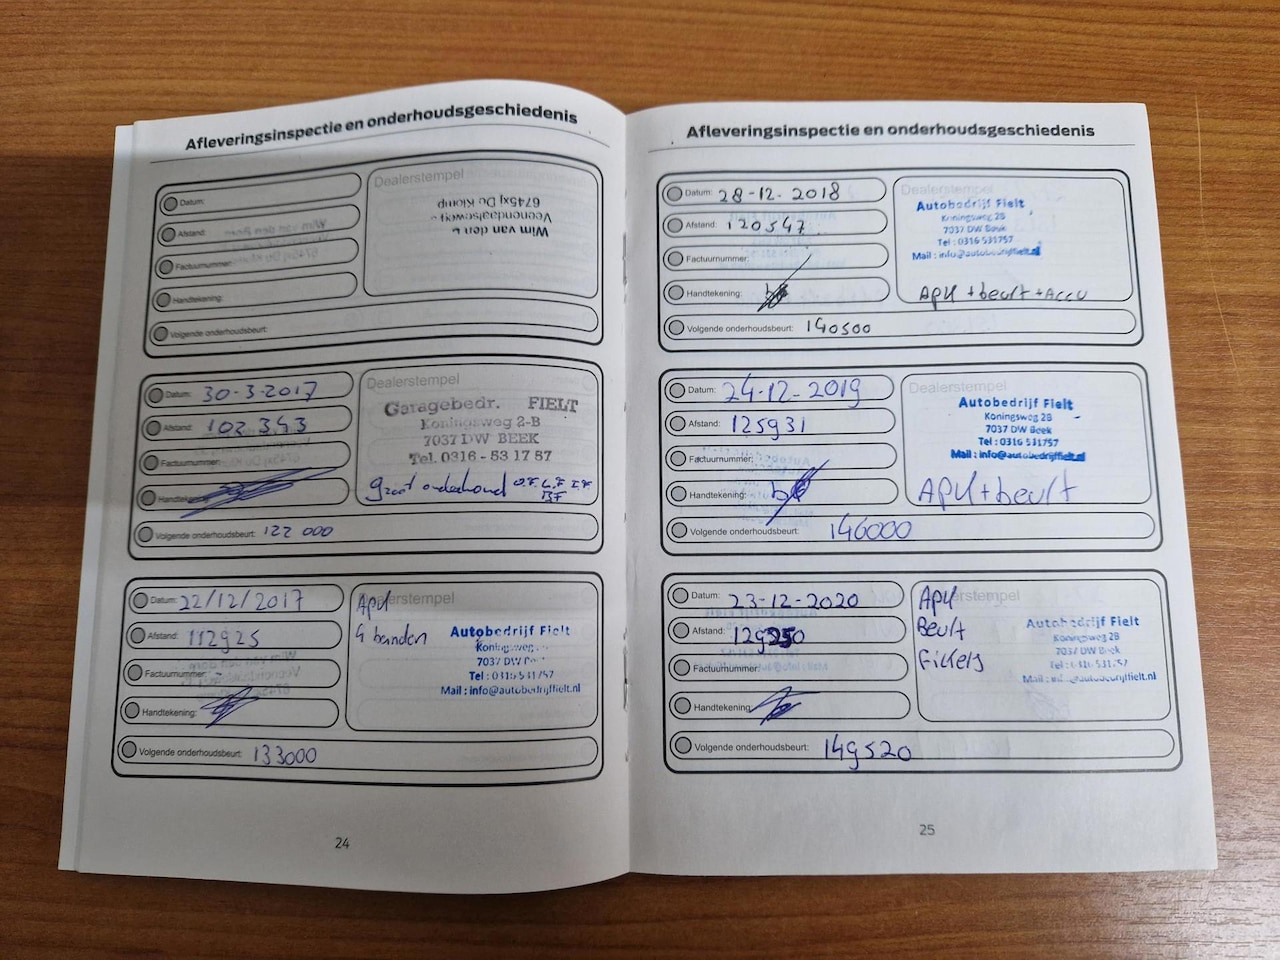 Afleveringsinspectie en onderhoudsgeschiedenis
Datum:
Afstand:
Factuurnummer:
Handtekening:
Volgende onderhoudsbeurt:
Dealerstempel
Wim van den
Veenendaalseweg
6745xj De Klomp
Datum: 30-3-2017
Afstand: 102 343
Factuurnummer:
Handtekening:
Volgende onderhoudsbeurt: 122 000
Dealerstempel
Garagebedr. FIELT
Koningsweg 2-B
7037 DW BEEK
Tel. 0316 - 53 17 57
groot onderhoud O.F. L.F I.F
BF
Datum: 22/12/2017
Afstand: 112925
Factuurnummer:
Handtekening:
Volgende onderhoudsbeurt: 133000
Dealerstempel
APK
4 banden
Autobedrijf Fielt
Koningsweg
7037 DW
Tel : 0316 531757
Mail : info@autobedrijffielt.nl
24
Afleveringsinspectie en onderhoudsgeschiedenis
Datum: 28-12-2018
Afstand: 120547
Factuurnummer:
Handtekening:
Volgende onderhoudsbeurt: 140500
Dealerstempel
Autobedrijf Fielt
Koningsweg 2B
7037 DW Beek
Tel : 0316 531757
Mail : info@autobedrijffielt.nl
APK + beurt + Accu
Datum: 24-12-2019
Afstand: 125931
Factuurnummer:
Handtekening:
Volgende onderhoudsbeurt: 146000
Dealerstempel
Autobedrijf Fielt
Koningsweg 2B
7037 DW Beek
Tel : 0316 531757
Mail : info@autobedrijffielt.nl
APK + beurt
Datum: 23-12-2020
Afstand:
Factuurnummer:
Handtekening:
Volgende onderhoudsbeurt: 149520
Dealerstempel
APK
Beurt
Autobedrijf Fielt
Koningsweg 2B
7037 DW Beek
Tel : 0316 531757
Mail : info@autobedrijffielt.nl
25